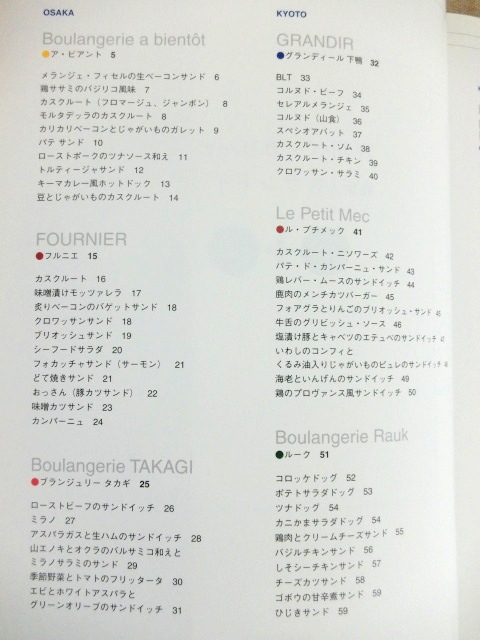 OSAKA
Boulangerie a bientôt
●ア・ビアント 5
メランジェ・フィセルの生ベーコンサンド 6
鶏ササミのバジリコ風味 7
カスクルート（フロマージュ、ジャンボン） 8
モルタデッラのカスクルート 8
カリカリベーコンとじゃがいものガレット 9
パテ サンド 10
ローストポークのツナソース和え 11
トルティージャサンド 12
キーマカレー風ホットドック 13
豆とじゃがいものカスクルート 14
FOURNIER
●フルニエ 15
カスクルート 16
味噌漬けモッツァレラ 17
炙りベーコンのバゲットサンド 18
クロワッサンサンド 18
ブリオッシュサンド 19
シーフードサラダ 20
フォカッチャサンド（サーモン） 21
どて焼きサンド 21
おっさん（豚カツサンド） 22
味噌カツサンド 23
カンパーニュ 24
Boulangerie TAKAGI
●ブランジュリー タカギ 25
ローストビーフのサンドイッチ 26
ミラノ 27
アスパラガスと生ハムのサンドイッチ 28
山エノキとオクラのバルサミコ和えと
ミラノサラミのサンド 29
季節野菜とトマトのフリッタータ 30
エビとホワイトアスパラと
グリーンオリーブのサンドイッチ 31
KYOTO
GRANDIR
●グランディール 下鴨 32
BLT 33
コルヌド・ビーフ 34
セレアルメランジェ 35
コルヌド（山食） 36
スペシオアバット 37
カスクルート・ソム 38
カスクルート・チキン 39
クロワッサン・サラミ 40
Le Petit Mec
●ル・プチメック 41
カスクルート・ニソワーズ 42
パテ・ド・カンパーニュ・サンド 43
鶏レバー・ムースのサンドイッチ 44
鹿肉のメンチカツバーガー 45
フォアグラとりんごのブリオッシュ・サンド 45
牛舌のグリビッシュ・ソース 46
塩漬け豚とキャベツのエテュベのサンドイッチ
いわしのコンフィと
くるみ油入りじゃがいものピュレのサンドイッチ
海老といんげんのサンドイッチ 49
鶏のプロヴァンス風サンドイッチ 50
Boulangerie Rauk
●ルーク 51
コロッケドッグ 52
ポテトサラダドッグ 53
ツナドッグ 54
カニかまサラダドッグ 54
鶏肉とクリームチーズサンド 55
バジルチキンサンド 56
しそシーチキンサンド 57
チーズカツサンド 58
ゴボウの甘辛煮サンド 59
ひじきサンド 59